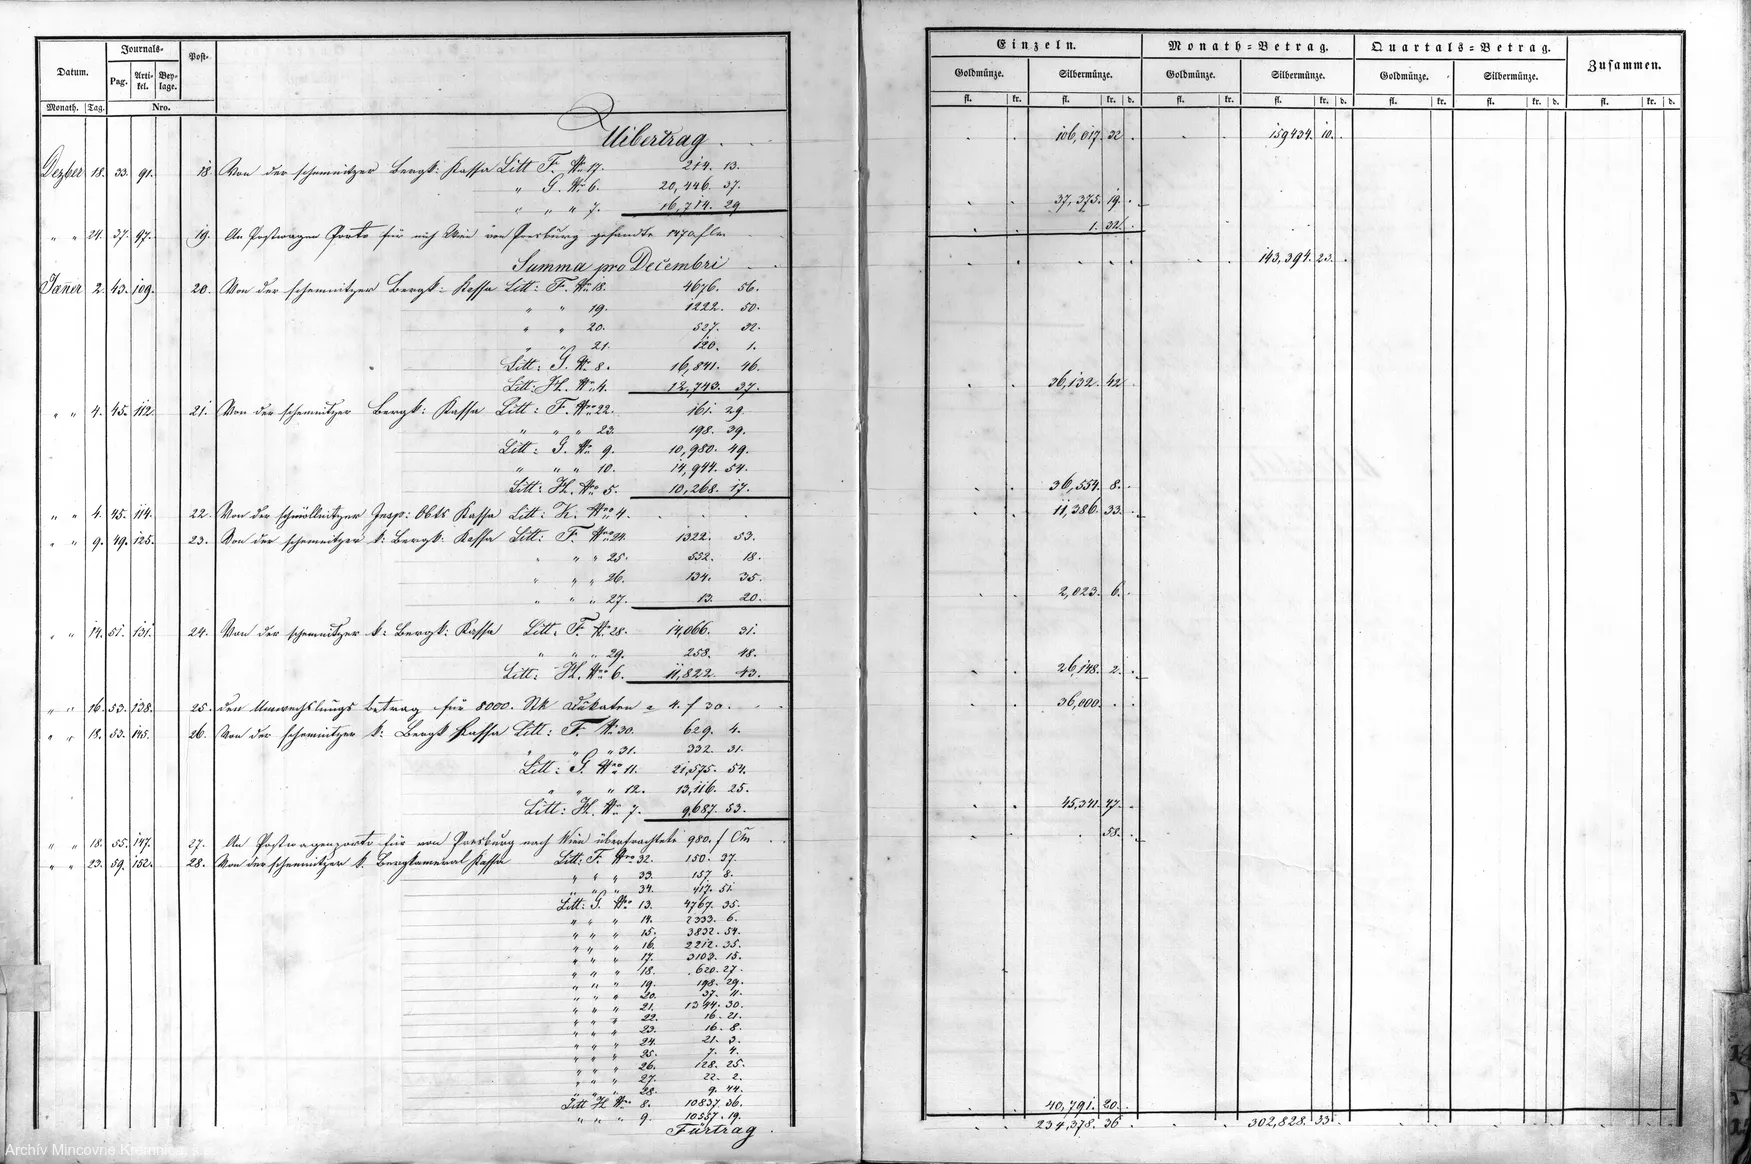 Datum. Journals- Post-
Pag. Arti-kel. Bey-lage.
Monath. Tag. Nro.
Einzeln. Monath-Betrag. Quartals-Betrag. Zusammen.
Goldmünze. Silbermünze. Goldmünze. Silbermünze. Goldmünze. Silbermünze.
fl. kr. fl. kr. d. fl. kr. fl. kr. d. fl. kr. fl. kr. d. fl. kr. d.
Uibertrag . 106,017. 32 159434. 10.
Dezber 18. 33. 91. 18. Von der schemnitzer Bergk: Kassa Litt F. No 17. 214. 13.
" G. No 6. 20,446. 37.
" " " 7. 16,714. 29 37,375. 19.
" " 24. 37. 97. 19. An Postwagen Porto für nach Wien von Presburg gesandte 1470 fl 1. 32.
Summa pro Decembri 143,394. 23.
Jañer 2. 43. 109. 20. Von der schemnitzer Bergk: Kassa Litt: F. No 18. 4676. 56.
" " 19. 1222. 50.
" " 20. 527. 32.
" " 21. 120. 1.
Litt: G. No 8. 16,841. 46.
Litt: H. No 4. 12,743. 37. 36,132. 42
" " 4. 45. 112. 21. Von der schemnitzer Bergk: Kassa Litt: F. Nro 22. 161. 29
" " " 23. 198. 39.
Litt: G. No 9. 10,980. 49.
" " " 10. 14,944. 54.
Litt: H. No 5. 10,268. 17. 36,554. 8.
" " 4. 45. 114. 22. Von der schmöllnitzer Insp: Obts Kassa Litt: K. Nro 4. 11,386. 33.
" " 9. 49. 125. 23. Von der schemnitzer k: Bergk: Kassa Litt: F. Nro 24. 1322. 53.
" " " 25. 552. 18.
" " " 26. 134. 35.
" " " 27. 13. 20. 2,023. 6.
" " 14. 51. 131. 24. Von der schemnitzer k: Bergk: Kassa Litt: F. No 28. 14,066. 31.
" " " 29. 258. 48.
Litt: H. Nro 6. 11,822. 43. 26,148. 2.
" " 16. 53. 138. 25. den Umwechslungs Betrag für 8000. Stk Dukaten a 4. f 30. 36,000.
" " 18. 53. 145. 26. Von der schemnitzer k: Bergk Kassa Litt: F. No 30. 629. 4.
" " " 31. 332. 31.
Litt: G. Nro 11. 21,575. 54.
" " " 12. 13,116. 25.
Litt: H. No 7. 9,687. 53. 45,341. 47.
" " 18. 55. 147. 27. An Postwagenporto für von Presburg nach Wien überfrachtete 980. f CM 58.
" " 23. 59. 152. 28. Von der schemnitzer k. Bergkameral Kassa Litt: F. Nro 32. 150. 37.
" " " 33. 157. 8.
" " " 34. 417. 51.
Litt: G. Nro 13. 4767. 35.
" " " 14. 2333. 6.
" " " 15. 3832. 54.
" " " 16. 2212. 35.
" " " 17. 3103. 15.
" " " 18. 620. 27.
" " " 19. 198. 29.
" " " 20. 37. 11.
" " " 21. 1344. 30.
" " " 22. 16. 21.
" " " 23. 16. 8.
" " " 24. 21. 3.
" " " 25. 7. 4.
" " " 26. 128. 25.
" " " 27. 22. 2.
" " " 28. 9. 44.
Litt H Nro 8. 10837. 36.
" " " 9. 10557. 19. 40,791. 20.
Fürtrag . 234,378. 36 302,828. 33.
Archív Mincovne Kremnica, š.p.